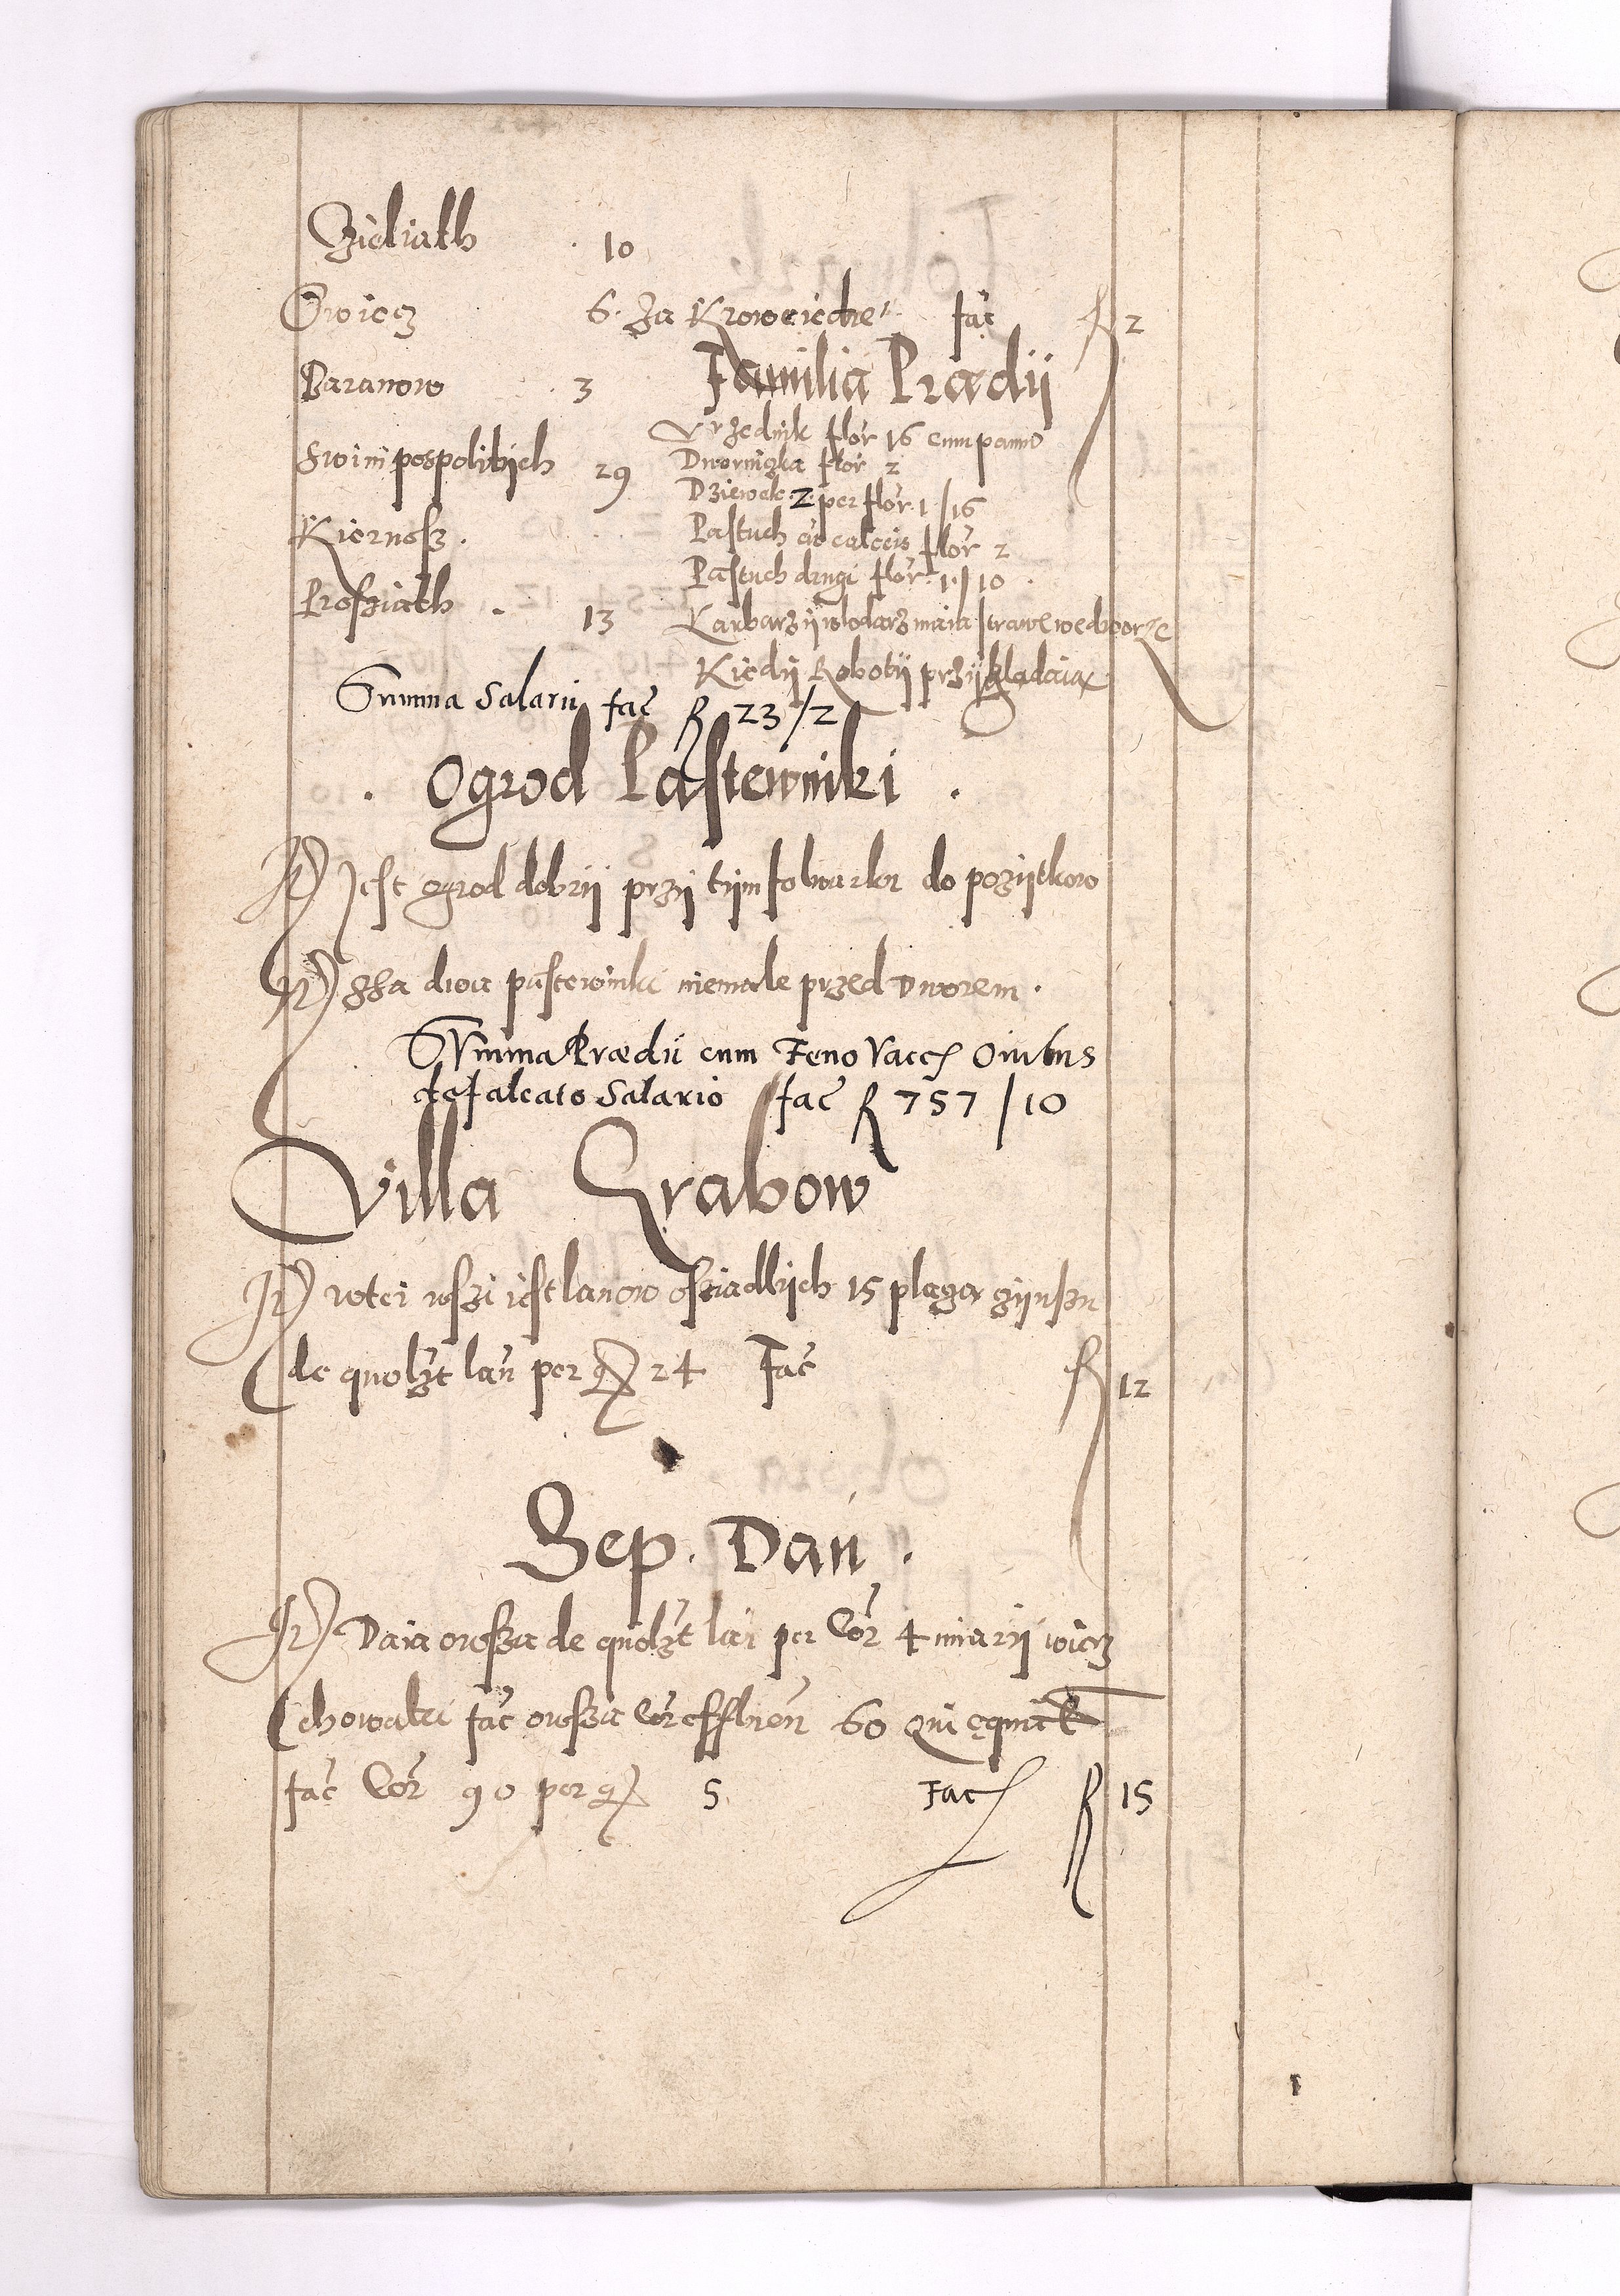 Zieliath 10
Owiecz 6. Za Krowe iedne fac̃ R 2
Baranow 3
Familia Prædii
Swini pospolitÿch 29
Vrzednik flor 16 cum panno
Dworniczka flor 2
Dziewek 2 per flor. 1/16
Kiernosz.
Pastuch cũ calceis flor 2
Pastuch drugi flor. 1/10
Prosziath 13
Karbarz ÿ wlodarz maia strawe wedworze
Kiedÿ Robotÿ przÿkladaia
Summa Salarii fac̃ R 23/2
Ogrod Pastewniki
Jt) Jest ogrod dobrÿ przÿ tÿm folwarku do pozÿtkow
Jt) dwa pastewniki niemale przed Dworem.
SVmma Prædii cum Feno Vacc Ouibus
defalcato Salario fac̃ R 757/10
Villa Grabow
Jt) wtei wszi iest lanow osziadlÿch 15 placza czÿnszu
de quolzt lan̄ per g 24 Fac̃ R 12
Sep. Dan.
Jt) Daia owsza de quolzt lan̄ per Cor̃ 4 miarÿ wierz
chowatei fac̃ owsza Cor̃ 60 Qui
fac̃ Cor̃ 90 per g 5 Fac R 15